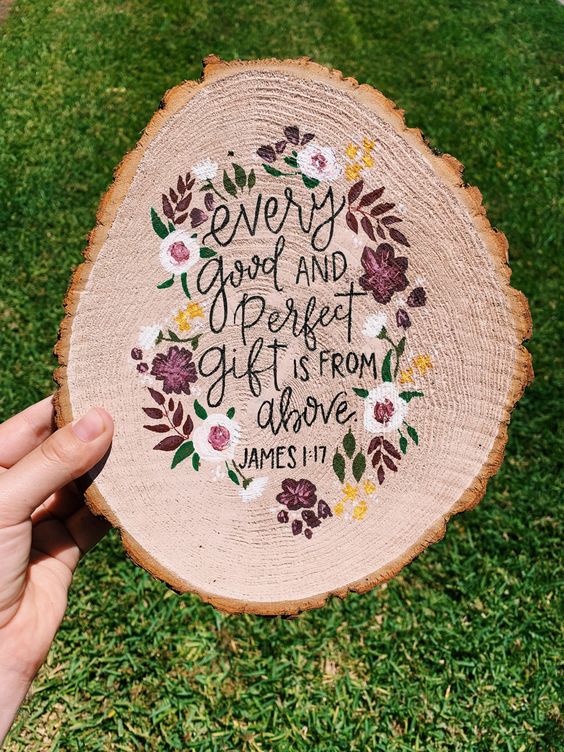 every
good AND
perfect
gift IS FROM
above.
JAMES 1:17